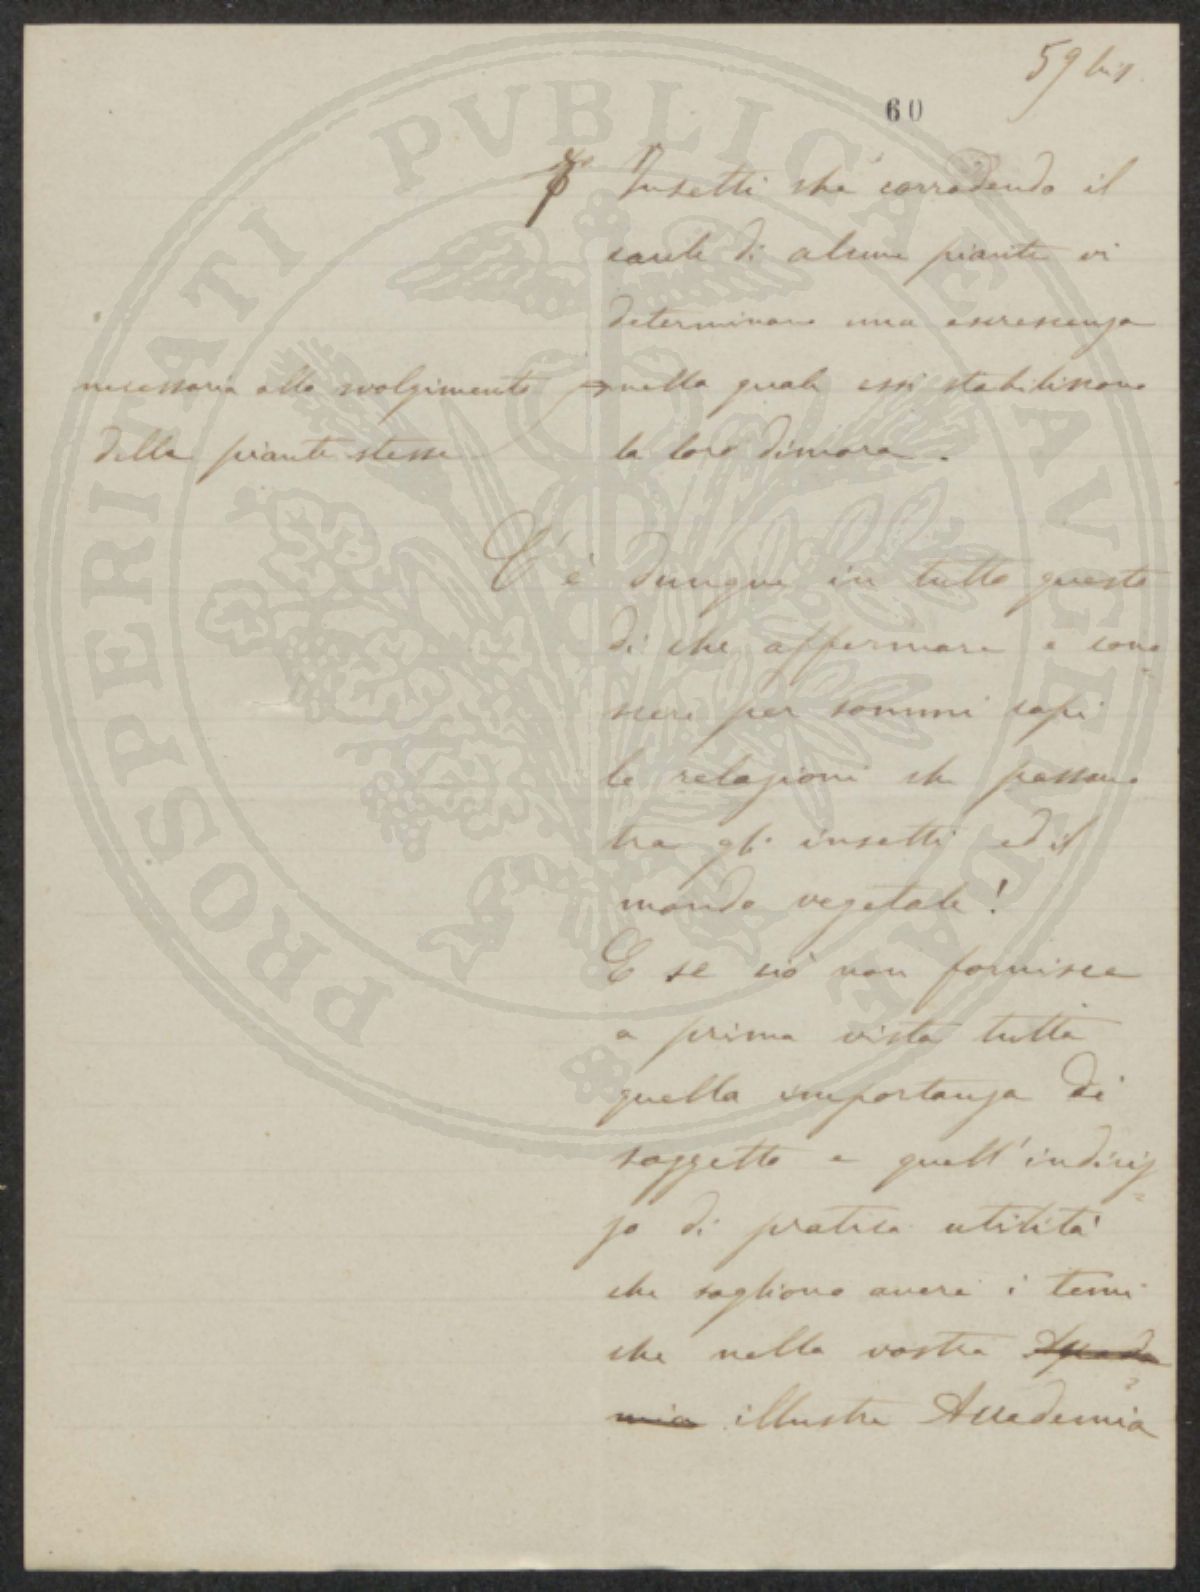 59 bis
60
Insetti che corrodendo il
caule di alcune piante vi
determinano una escrescenza
necessaria allo svolgimento
della piante stesse
nella quale essi stabiliscono
la loro dimora.
C'è dunque in tutto questo
di che affermare e cono=
scere per sommi capi
le relazioni che passano
tra gli insetti ed il
mondo vegetale!
E se ciò non fornisce
a prima vista tutta
quella importanza di
soggetto e quell'indiriz=
zo di pratica utilità
che sogliono avere i temi
che nella vostra Accade=
mia illustre Accademia
PROSPERITATI PVBLICAE AVGENDAE